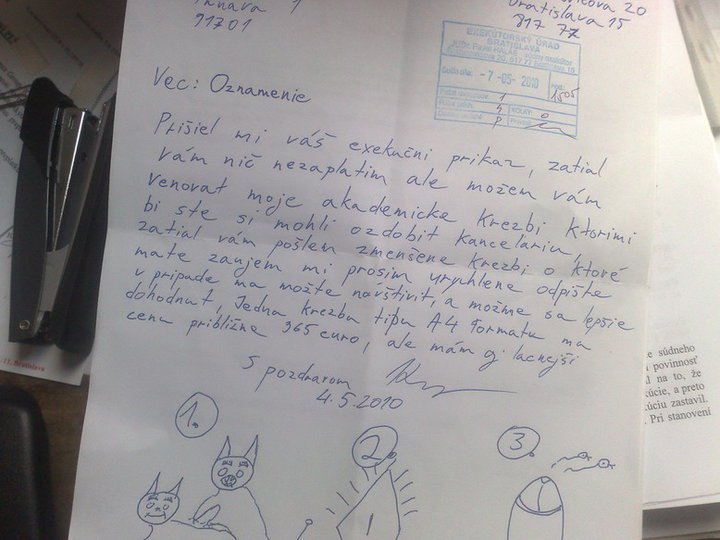 1
91701
20
Bratislava 15
817 77
EXEKÚTORSKÝ ÚRAD
BRATISLAVA
-7-05-2010
1505
Vec: Oznamenie
Prišiel mi váš exekučni prikaz, zatial
vám nič nezaplatim ale možem vám
venovat moje akademicke krezbi ktorimi
bi ste si mohli ozdobit kancelariu,
zatial vám pošlem zmenšene krezbi o ktoré
mate zaujem mi prosim urychlene odpište
v pripade ma možte navštivit, a možme sa lepšie
dohodnut, Jedna krezba tipu A4 formatu ma
cenu približne 365 euro, ale mám g. lacnejši
S pozdravom
4.5.2010
1.
2.
3.
11. Bratislava
súdneho
povinnosť
na to, že
a preto
zastavil.
Pri stanovení